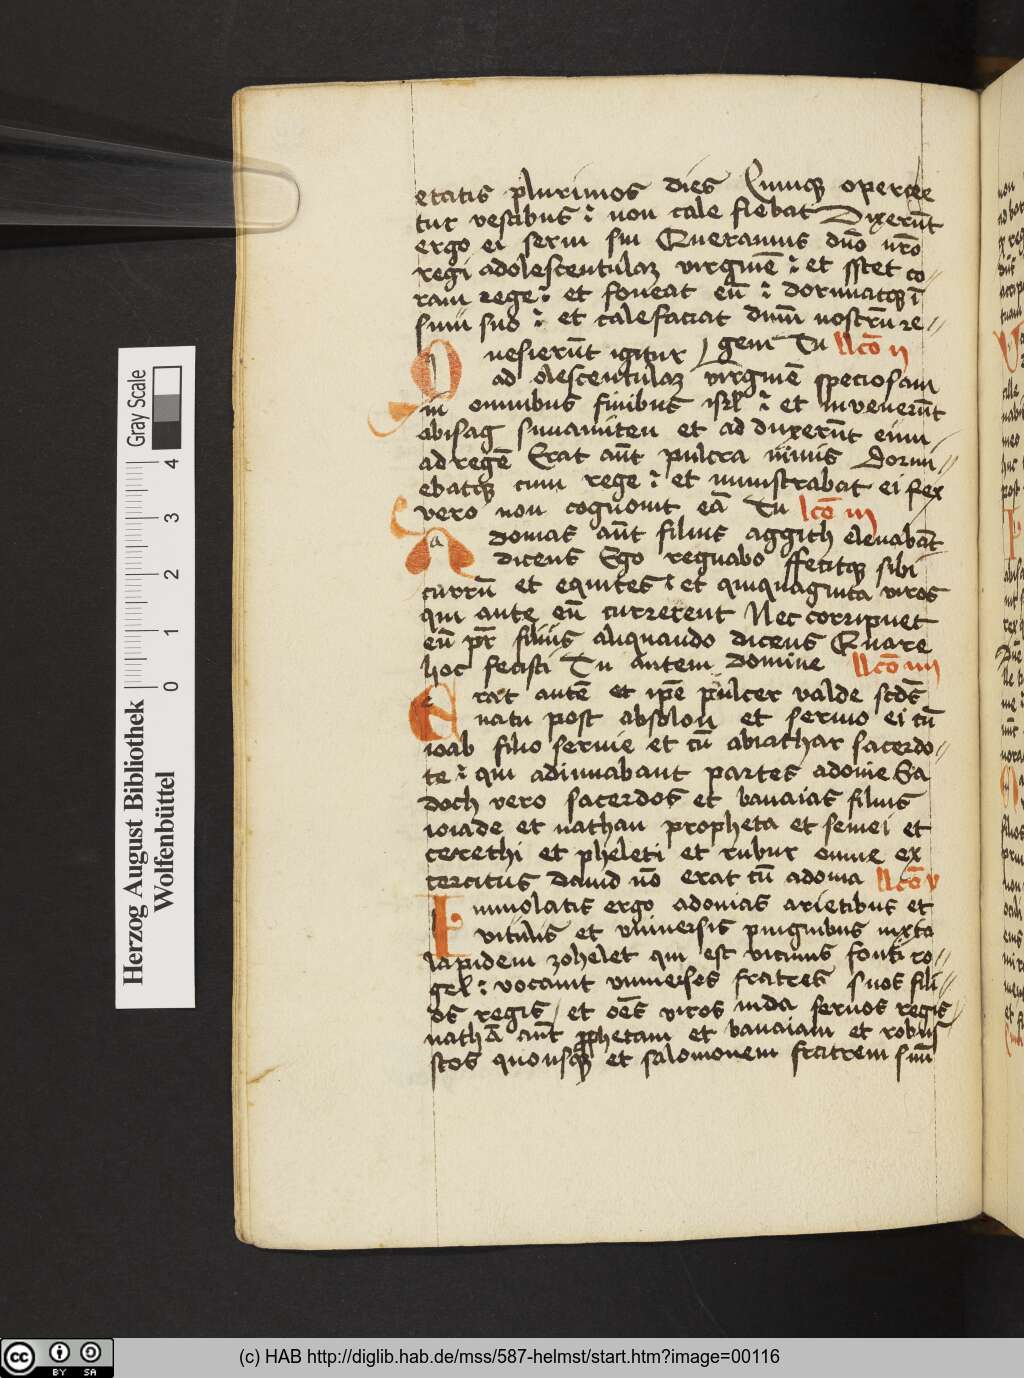 etatis plurimos dies Cumqꝫ operiee
tur vestibus : non cale fiebat Dixerūt
ergo ei serui sui Queramus dn̄o nr̄o
regi adolescentulaꝫ virginē : et sstet co
ram rege : et foueat eū : dormiatqꝫ ī
sinu suo : et calefaciat dnm̄ nostrū re
gem Tu llcō ij
Quesierūt igitur
ad olescentulaꝫ virginē speciosam
in omnibus finibus isrl̄ : et inuenerūt
abisag sunamiten et ad duxerūt eam
ad regē Erat aūt pulcra nimis Dormi
ebatqꝫ cum rege : et ministrabat ei Rex
vero non cognouit eā Tu lcō iij
Adonias aūt filius aggith eleuabāt
dicens Ego regnabo ffecitqꝫ sibi
currū et equites : et quiquaginta viros
qui ante eū currerent Nec corripuet
eū pr̄ filius aliquando dicens Quare
hoc fecisti Tu autem domine llcō iiij
Erat autē et ip̄e pulcer valde scdꝰ
natu post absolon et sermo ei cū
ioab filio seruie et cū abiathar sacerdo
te : qui adiuuabant partes adonie Sa
doch vero sacerdos et banaias filius
ioiade et nathan propheta et semei et
cerethi et pheleti et rubur omne ex
cercitus dauid nō erat cū adonia llcō v
Immolatis ergo adonias arietibus et
vitulis et vniuersis pinguibus iuxta
lapidem zohelet qui est vicinus fonti ro
gel : vocauit vniuersos fratres suos fili
os regis et oēs viros iuda seruos regis
nathā aūt ꝓphetam et banaiam et robus
stos quousqꝫ et salomonem fratrem suū
Herzog August Bibliothek
Wolfenbüttel
0 1 2 3 4
Gray Scale
cc BY SA
(c) HAB http://diglib.hab.de/mss/587-helmst/start.htm?image=00116